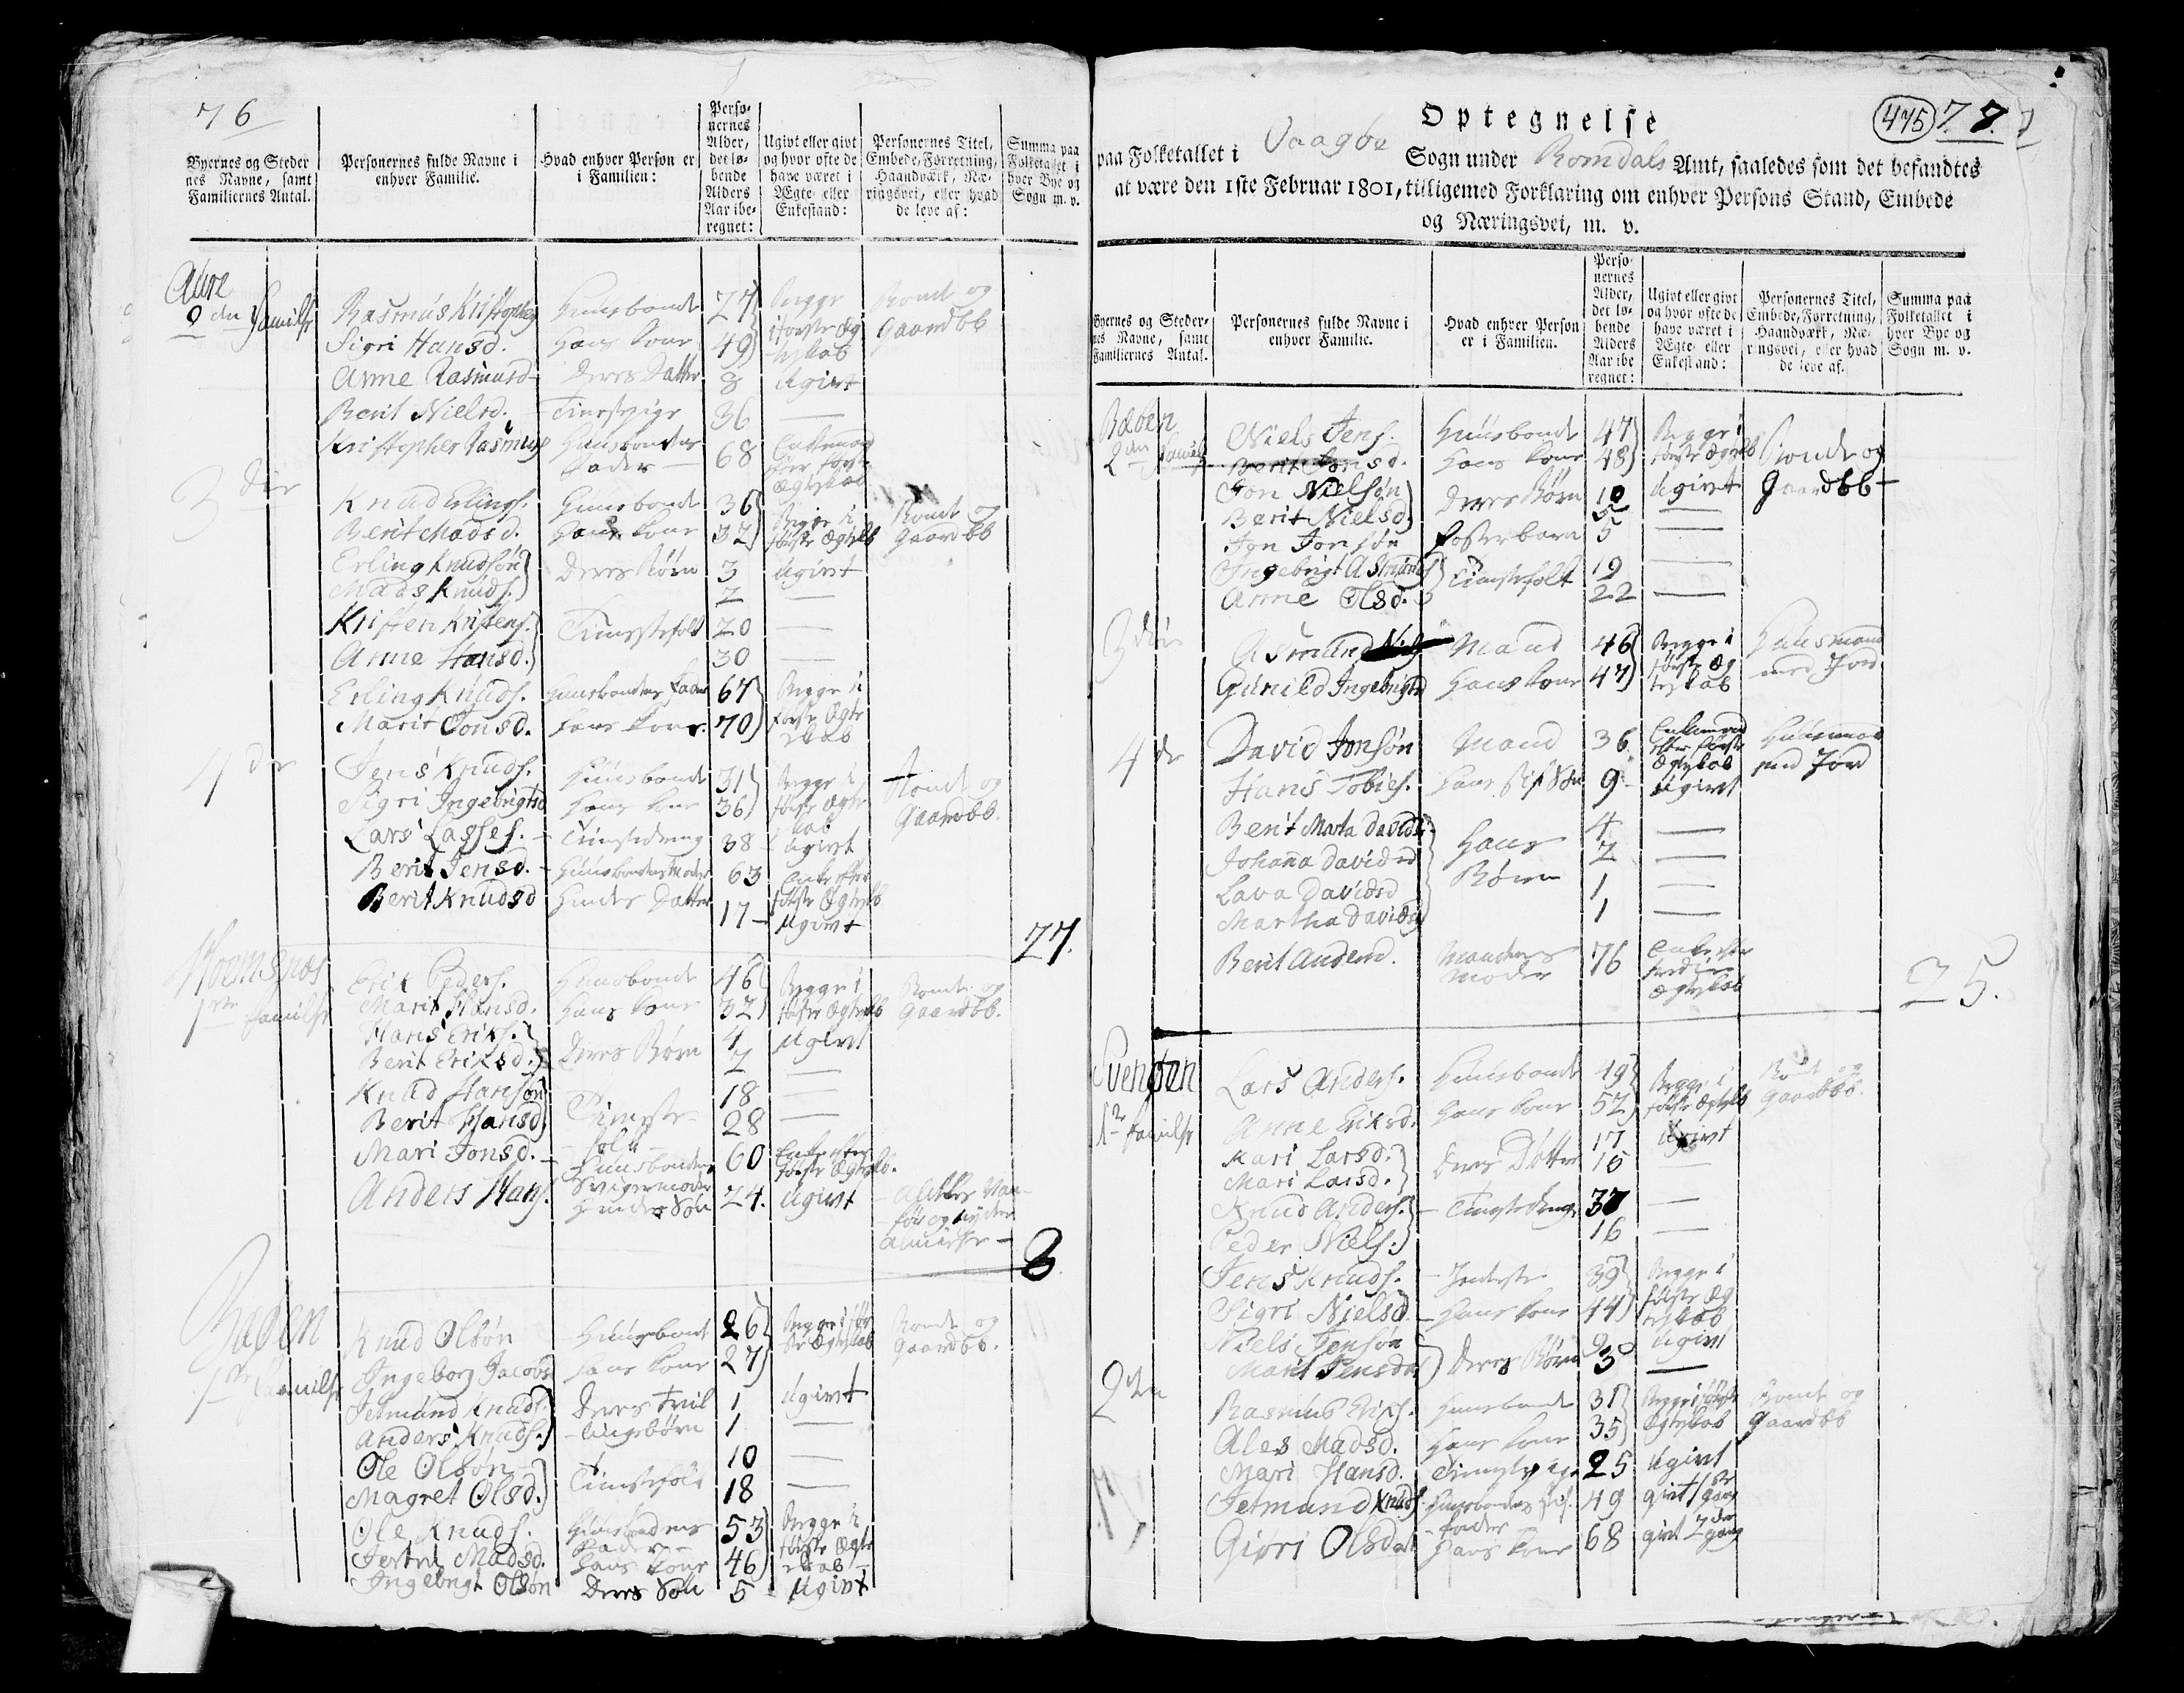 76
Byernes og Steder
nes Navne, samt
Familiernes Antal.
Personernes fulde Navne i
enhver Familie.
Hvad enhver Person er
i Familien:
Perso-
nernes
Alder,
det lø-
bende
Alders
Aar ibe-
regnet:
Ugivt eller givt
og hvor ofte de
have været i
Ægte eller
Enkestand:
Personernes Titel,
Embede, Forretning,
Haandværk, Næ-
ringsvei, eller hvad
de leve af:
Summa paa
Folketallet i
hver Bye og
Sogn m. v.
Aure
2den Familie
Rasmus Kristophers Huusbonde 27 Begge Bonde og
Sigri Hansd. Hans kone 49 i første Æg Gaardbb
teskab
Anne Rasmusd - Deres Datter 8 Ugivt
Berit Nielsd. - Tienestepige 36 —
Kristopher Rasmus Huusbondens 68 Enkemand
Fader — efter første
Ægteskab
3die
Knud Erlings. Huusbonde 36 Begge i Bonde og
Berit Madsd. Hans kone 32 første Ægteskb Gaardbb
Erling Knudsøn Deres Børn 3 Ugivt
Mads Knuds. 2 —
Kristen Kristens. Tienestefolk 20 —
Anne Hansd. 30 —
Erling Knuds. Huusbondens Fader 67 Begge i
Marit Jonsd. Hans kone 70 første Ægte
skab
4de
Jens Knuds. Huusbonde 31 Begge i Bonde og
Sigri Ingebrigtsd Hans kone 36 første Ægte Gaardbb.
skab
Lars Lasses. - Tienestedreng 38 Ugivt
Berit Jensd. - Huusbondens Moder 63 Enke efter
første Ægteskb
Berit Knudsd Hendes Datter 17 - Ugivt
27.
1ste Familie
Erik Peders. Huusbonde 46 Begge i Bonde og
Marit Hansd. Hans kone 32 første Ægteskb Gaardbb.
Hans Eriks. Deres Børn 4 Ugivt
Berit Eriksd. 2 —
Knud Hansøn Tieneste- 18 —
Berit Hansd folk 28 —
Mari Jonsd. — Huusbondens 60 Enke efter
Svigermoder første Ægteskb.
Anders Hans. Hendes Søn 24. Ugivt - Van-
før og nyder
Almisse —
8
Bøen
1ste Familie
Knud Olsøn Huusbonde 26 Begge i før Bonde og
Ingeborg Jacobs Hans kone 27 ste Ægteskab Gaardbb.
Jetmund Knuds. Deres Tvil 1 Ugivt
Anders Knuds. - lingebørn 1 —
Ole Olsøn — Tienestefolk 10 —
Magret Olsd. 18 —
Ole Knuds. Huusbondens 53 Begge i
Fader — første Ægte
Madsd. Hans kone 46 skab —
Ingebrigt Olsøn Deres Søn 5 Ugivt
Optegnelse
475 77
paa Folketallet i Vaagøe Sogn under Romdals Amt, saaledes som det befandtes
at være den 1ste Februar 1801, tilligemed Forklaring om enhver Persons Stand, Embede
og Næringsvei, m. v.
Byernes og Steder-
nes Navne, samt
Familiernes Antal.
Personernes fulde Navne i
enhver Familie.
Hvad enhver Person
er i Familien.
Perso-
nernes
Alder,
det lø-
bende
Alders
Aar ibe
regnet:
Ugivt eller givt
og hvor ofte de
have været i
Ægte eller
Enkestand:
Personernes Titel,
Embede, Forretning,
Haandværk, Næ-
ringsvei, eller hvad
de leve af.
Summa paa
Folketallet i
hver Bye og
Sogn m. v.
Bøen
2den Famil
Niels Jens. Huusbonde 47 Begge i Bonde og
Berit Jonsd. Hans kone 48 første Ægteskb Gaardbb —
Jon Nielsøn Deres Børn 10 Ugivt
Berit Nielsd 5 —
Jon Jonsøn Fosterbarn 5 —
Ingebrigt Asmunds Tienestefolk 19 —
Anne Olsd. 22 —
3die
Asmund Mand 46 Begge i Huusmand
Gunild Ingebrigtsd Hans kone 47 første Æg med Jord
teskab
4de
David Jonsøn Mand 36 Enkemand Huusmand
efter første med Jord
Ægteskab
Hans Tobies. Hans Stifsøn 9 Ugivt
Berit Marta Davids Hans 4 —
Johanna Davidsd Børn 2 —
Lava Davidsd 1 —
Martha Davidsd 1 —
Berit Andersd. Mandens 76 Enke efter
Moder tredie
Ægteskab
25.
Svenøen
1ste Familie
Lars Anders. Huusbonde 49 Begge i Bonde og
Anne Eriksd. Hans kone 52 første Ægteskb Gaardbb.
Kari Larsd. Deres Døttre 17 Ugivt
Mari Larsd. 15 —
Knud Anders. - Tienestedrenge 37 —
Peder Niels. 16 —
Jens Knuds. - Inderste 39 Begge i
Sigri Nielsd - Hans kone 44 første Æg
teskab
Niels Jensøn Deres Børn 9 Ugivt
Marit Jensdat 3 —
2den
Rasmus Eriks. Huusbonde 31 Begge i første Bonde og
Ales Madsd. Hans kone 35 Ægteskab Gaardbb
Mari Hansd. Tienestepige 25 Ugivt
Jetmund Knuds Huusbondens Stif- 49 givt 1ste gang
- fader
Giøri Olsdat Hans kone 68 givt 2den gang